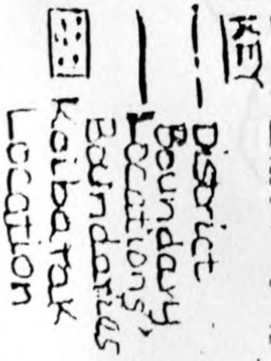 KEY
District
Boundary
Locations'
Boundaries
Koibatak
Location